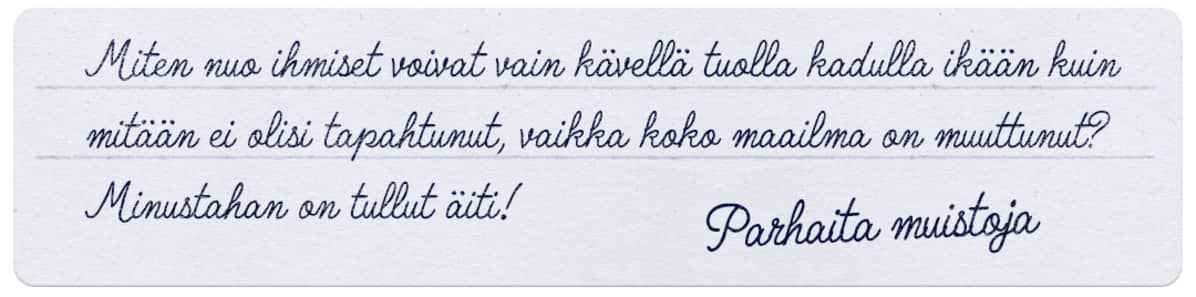 Miten nuo ihmiset voivat vain kävellä tuolla kadulla ikään kuin
mitään ei olisi tapahtunut, vaikka koko maailma on muuttunut?
Minustahan on tullut äiti!
Parhaita muistoja